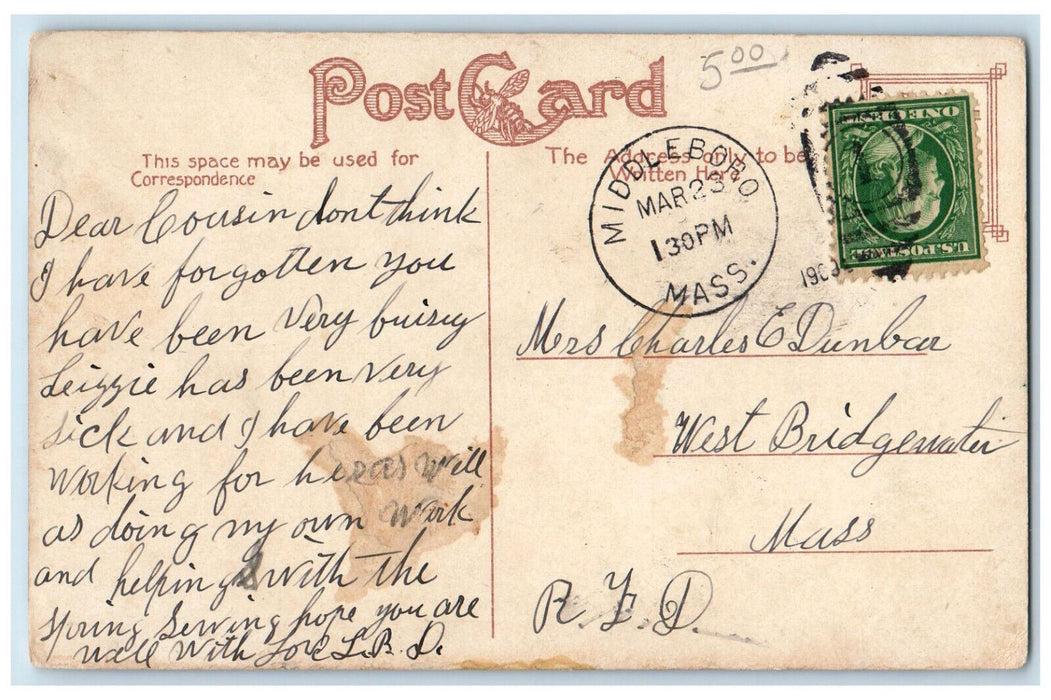 Post Card
5.00
This space may be used for
Correspondence
The Address only to be
Written Here
MIDDLEBORO
MAR 23
130PM
MASS.
ONE CENT
U.S. POSTAGE
Dear Cousin dont think
I have forgotten you
have been very buisy
Leizzie has been very
sick and I have been
working for her as well
as doing my own work
and helping with the
spring sewing hope you are
well with Love L. B. D.
Mrs Charles E Dunbar
West Bridgewater
Mass
R. F. D.